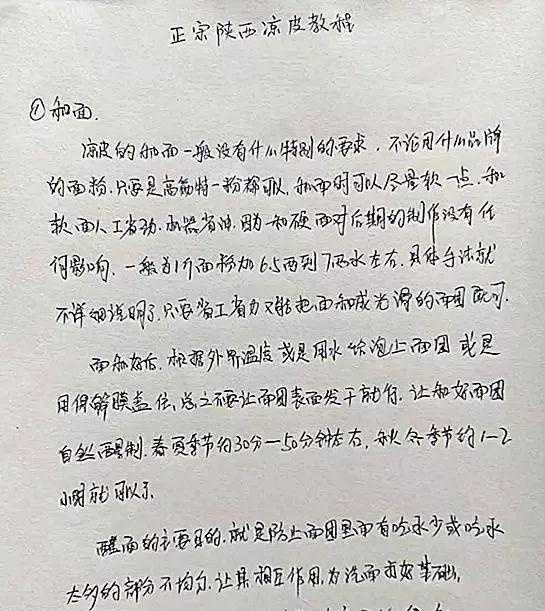 正宗陕西凉皮教程
①和面.
凉皮的和面一般没有什么特别的要求.不论用什么品牌
的面粉.只要是高筋特一粉都可以,和面时可以尽量软一点.和
软面人工省劲.机器省油.因为和硬面对后期的制作没有任
何影响.一般为1斤面粉加6.5两到7两水左右.具体手法就
不详细说明了.只要省工省力又能把面和成光滑的面团既可.
面和好后.根据外界温度或是用水给泡上面团或是
用保鲜膜盖住,总之不要让面团表面发干就行.让和好面团
自然醒制.春夏季节约30分—50分钟左右,秋冬季节约1-2
小时就可以了
醒面的主要目的.就是防止面团里面有吃水少或吃水
太多的部分不均匀.让其相互作用,为洗面打好基础,